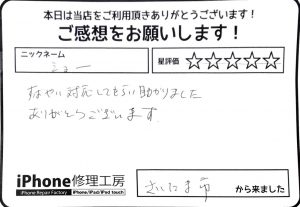 本日は当店をご利用頂きありがとうございます！
ご感想をお願いします！
ニックネーム
ミュー
星評価 ☆☆☆☆☆
すばやい対応してもらい助かりました
ありがとうございます。
iPhone修理工房
iPhone Repair Factory
iPhone/iPad/iPod touch
さいたま市
から来ました